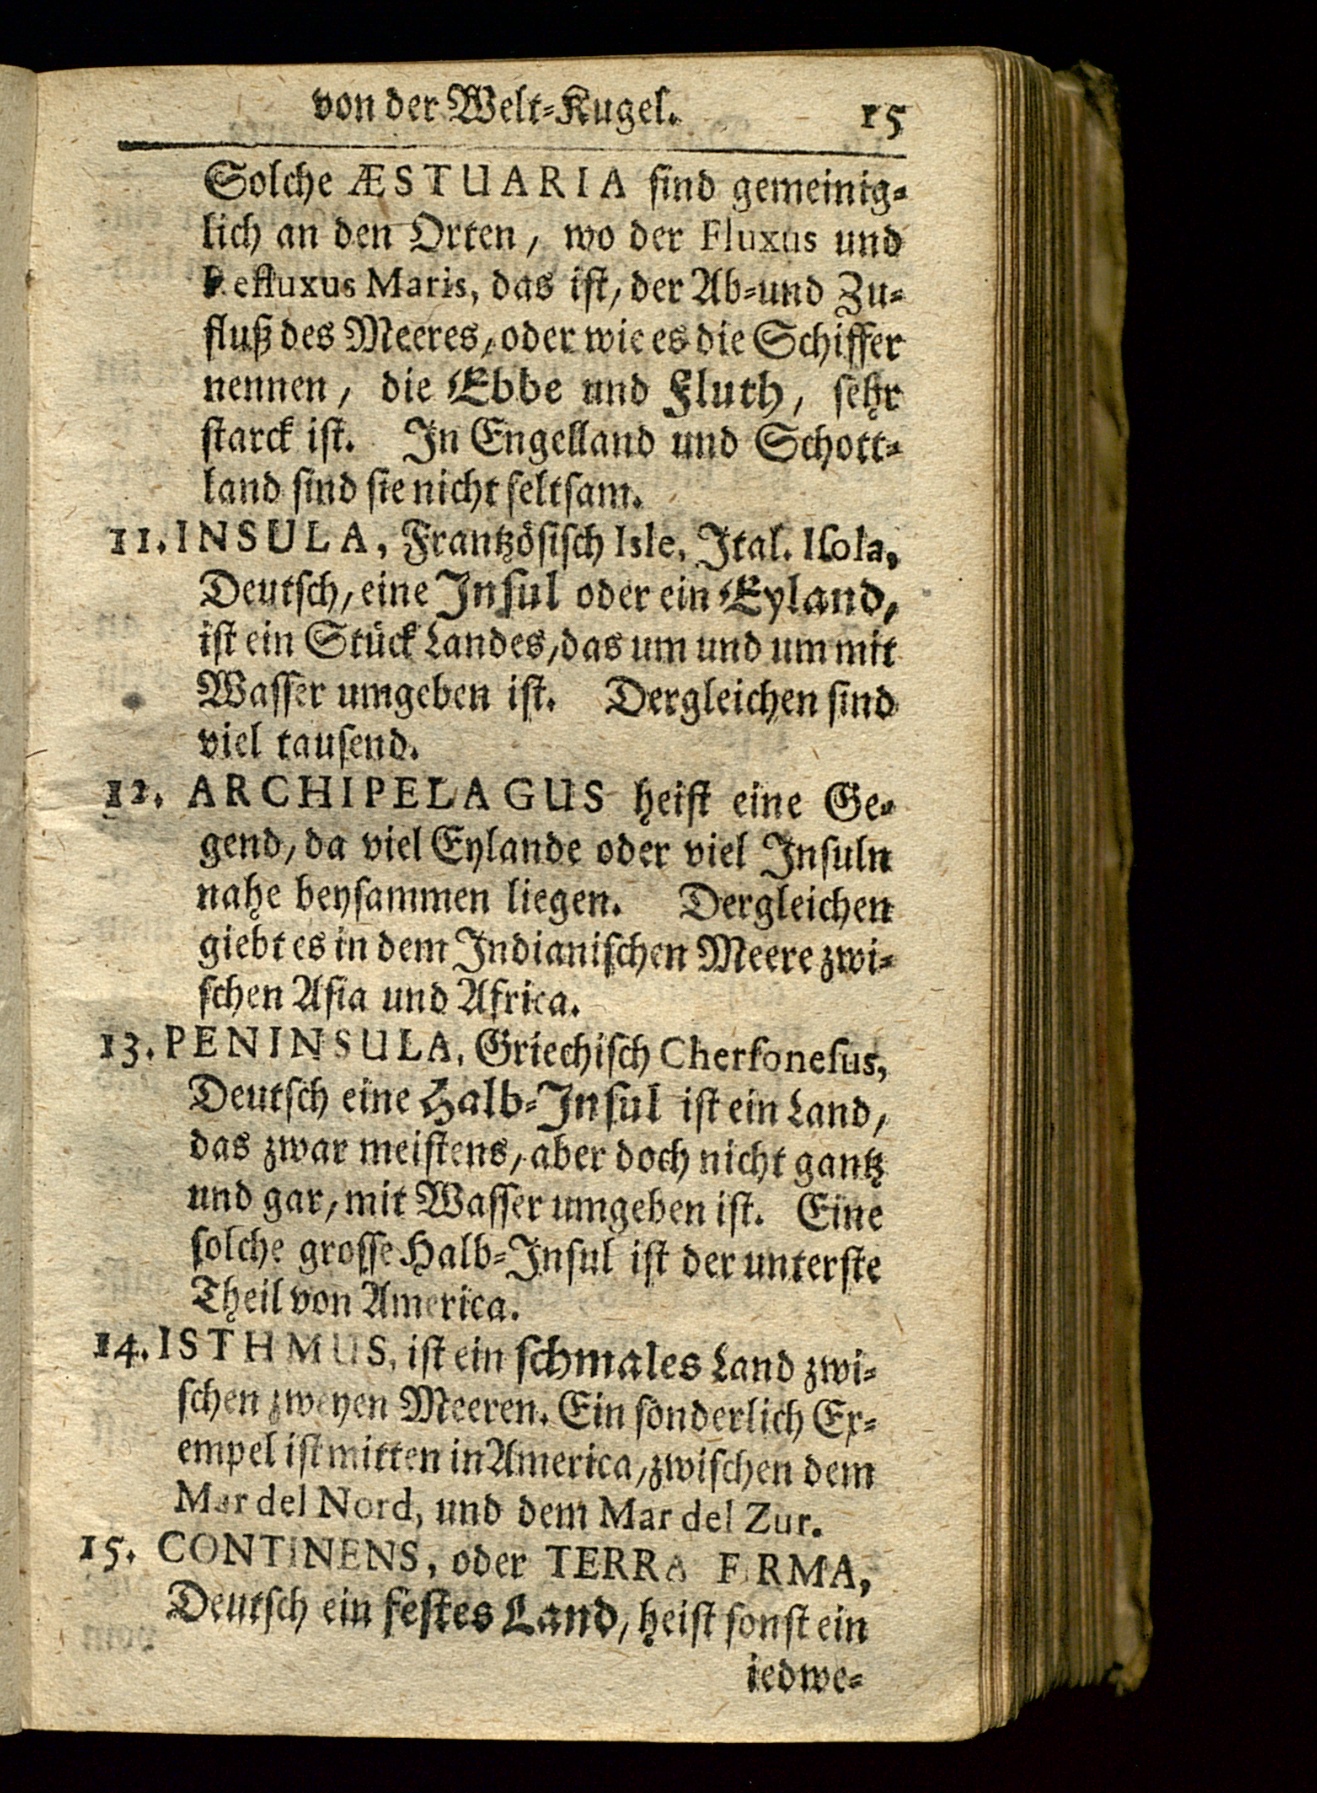 von der Welt-Kugel. 15
Solche ÆSTUARIA sind gemeinig-
lich an den Orten, wo der Fluxus und
Refluxus Maris, das ist, der Ab-und Zu-
fluß des Meeres, oder wie es die Schiffer
nennen, die Ebbe und Fluth, sehr
starck ist. In Engelland und Schott-
land sind sie nicht seltsam.
11. INSULA, Frantzösisch Isle, Ital. Isola,
Deutsch, eine Insul oder ein Eyland,
ist ein Stück Landes, das um und um mit
Wasser umgeben ist. Dergleichen sind
viel tausend.
12. ARCHIPELAGUS heist eine Ge-
gend, da viel Eylande oder viel Insuln
nahe beysammen liegen. Dergleichen
giebt es in dem Indianischen Meere zwi-
schen Asia und Africa.
13. PENINSULA, Griechisch Chersonesus,
Deutsch eine Halb-Insul ist ein Land,
das zwar meistens, aber doch nicht gantz
und gar, mit Wasser umgeben ist. Eine
solche grosse Halb-Insul ist der unterste
Theil von America.
14. ISTHMUS, ist ein schmales Land zwi-
schen zweyen Meeren. Ein sonderlich Ex-
empel ist mitten in America, zwischen dem
Mar del Nord, und dem Mar del Zur.
15. CONTINENS, oder TERRA FIRMA,
Deutsch ein festes Land, heist sonst ein
iedwe-